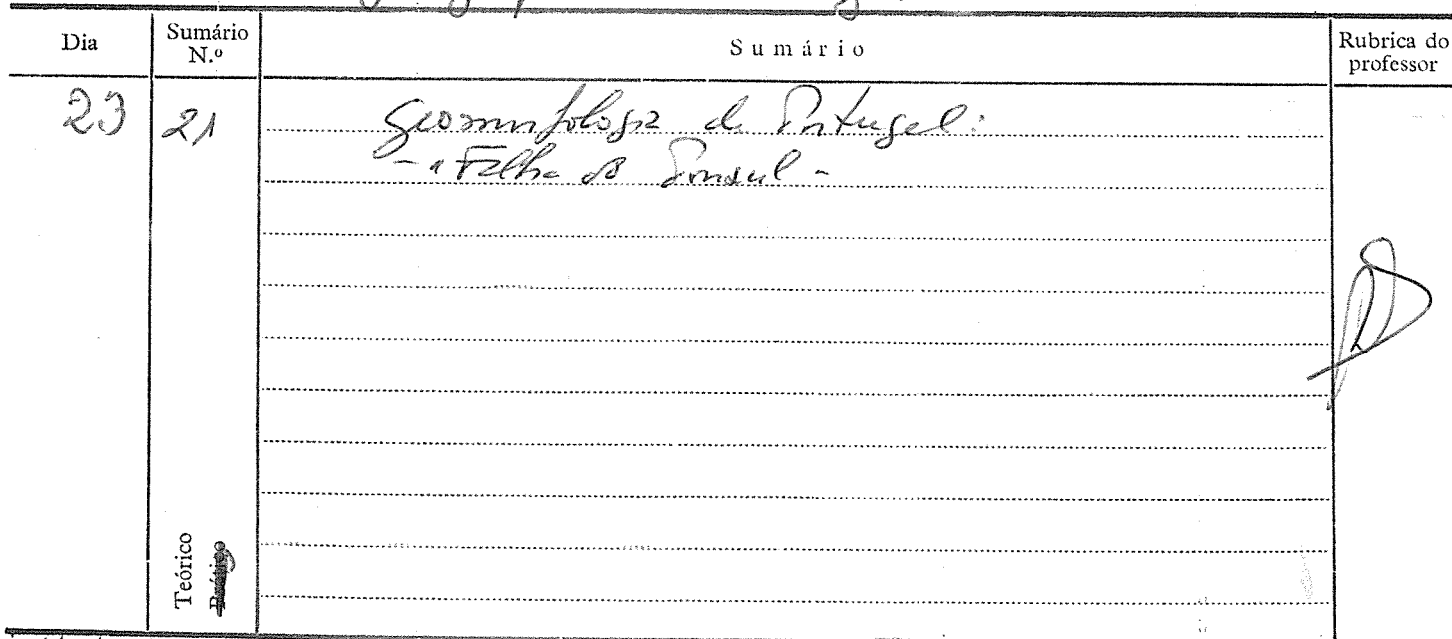 Dia
Sumário N.º
Sumário
Rubrica do professor
23
21
Geomorfologia de Portugal:
- a Falha do Ponsul -
Teórico
Prático